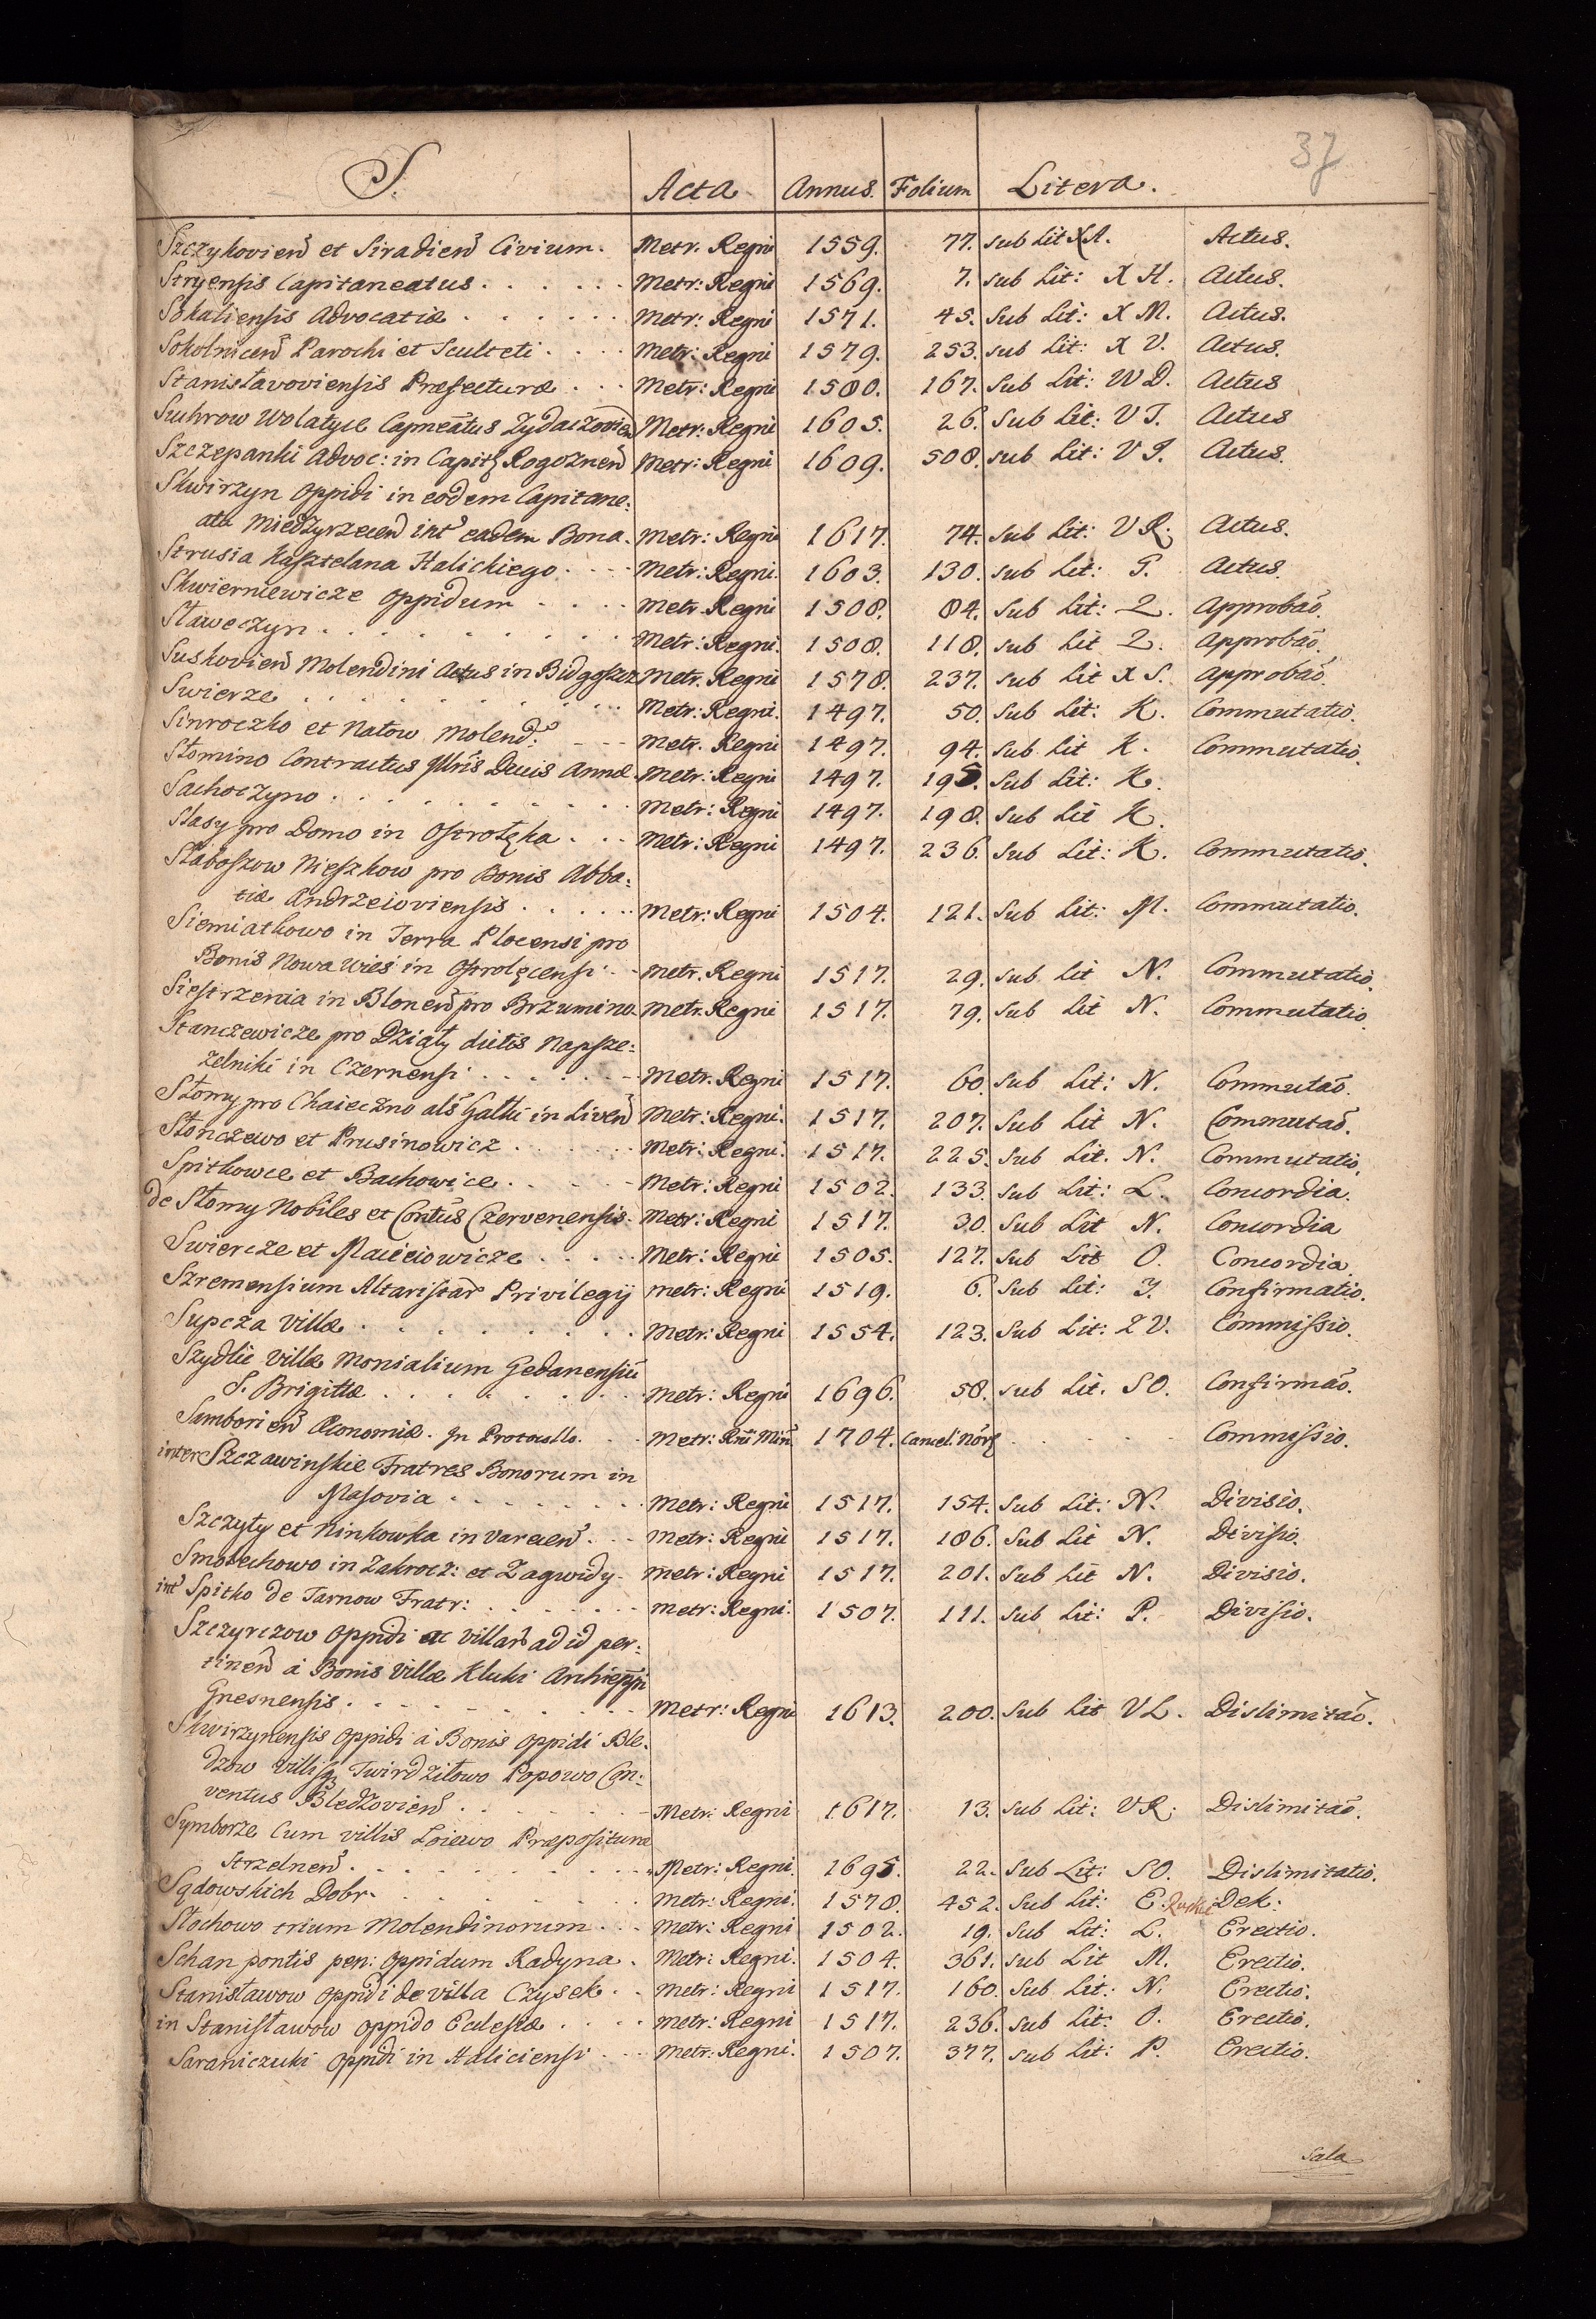 37
S. Acta Annus. Folium Litera.
Szczykovień et Siradień Civium. Metr. Regni 1559. 77. sub Lit XA. Actus.
Stryensis Capitaneatus . . . . . . Metr: Regni 1569. 7. sub Lit: X H. Actus.
Sokaliensis Advocatiæ . . . . . . Metr: Regni 1571. 45. Sub Lit: X M. Actus.
Sokolniceń Parochi et Sculteti . . . . Metr: Regni 1579. 253. sub Lit: X V. Actus.
Stanisławoviensis Præfecturæ . . . Metr: Regni 1580. 167. Sub Lit: W D. Actus
Suchrow Wolatycze Capneatus Zydaczovień Metr: Regni 1605. 26. Sub Lit: V J. Actus
Szczepanki Advoc: in Capit Rogoźneń Metr: Regni 1609. 508. sub Lit: V J. Actus.
Skwirzyn Oppidi in eodem Capitane:
atu Miedzyrzeceń int eadem Bona. Metr: Regni 1617. 74. sub Lit: V R. Actus.
Strusia Kasztelana Halickiego . . . . Metr: Regni. 1603. 130. sub Lit: G. Actus.
Skwierniewicze Oppidum . . . . Metr. Regni 1508. 84. Sub Lit: 2. Approbão.
Sławeczyn . . . . . . . . . Metr: Regni. 1508. 118. sub Lit 2. Approbão.
Suskovień Molendini Actus in Bidgoszcz Metr. Regni 1578. 237. sub Lit X S. Approbão.
Swierze . . . . . . . . . Metr: Regni. 1497. 50. Sub Lit: K. Commutatio.
Sinroczko et Natow Molend: . . . Metr. Regni 1497. 94. Sub Lit K. Commutatio.
Słomino Contractus Ducis Annæ Metr: Regni 1497. 195. Sub Lit: K.
Sachoczyno . . . . . . . . . Metr: Regni 1497. 198. Sub Lit K.
Stasy pro Domo in Ostrołęka . . . Metr: Regni 1497. 236. Sub Lit: K. Commutatio.
Słaboszow Mieszkow pro Bonis Abba:
tiæ Andrzeioviensis . . . . . . Metr: Regni 1504. 121. Sub Lit: M. Commutatio.
Siemiatkowo in Terra Plocensi pro
Bonis Nowa Wieś in Ostrołęcensi . . Metr. Regni 1517. 29. Sub Lit N. Commutatio.
Siestrzenia in Bloneń pro Brzumino. Metr. Regni 1517. 79. Sub Lit N. Commutatio.
Stanczewicze pro Działy dictis Napsze:
zelniki in Czernensi . . . . . . Metr. Regni 1517. 60. Sub Lit: N. Commutaõ.
Słomy pro Chaieczno als Gałki in Liveń Metr: Regni. 1517. 207. Sub Lit N. Commutaõ.
Stonczewo et Prusinowicz . . . . . . Metr: Regni. 1517. 225. Sub Lit. N. Commutatio.
Spitkowce et Bachowice . . . . . . Metr: Regni 1502. 133. Sub Lit: L. Concordia.
de Słomy Nobiles et Contus Czervenensis. Metr: Regni 1517. 30. Sub Lit N. Concordia
Swiercze et Maieciowicze . . . . . Metr: Regni 1505. 127. Sub Lit O. Concordia
Szremensium Altaristar Privilegij Metr: Regni 1519. 6. Sub Lit: 3. Confirmatio.
Supcza Villæ . . . . . . . . . Metr: Regni 1554. 123. Sub Lit: Z V. Commissio.
Szydlie Villæ Monialium Gedanensiũ
S. Brigittæ . . . . . . . . . Metr: Regni 1696. 58. sub Lit. S O. Confirmão.
Samborień Œconomiæ. In Protocollo. . . Metr: Rni Min 1704. Cancel: . . . . . Commissio.
inter Szczawinskie Fratres Bonorum in
Masovia . . . . . . . Metr: Regni 1517. 154. Sub Lit: N. Divisio.
Szczyty et Ninkowka in Vareceń . . . Metr: Regni 1517. 186. Sub Lit N. Divisio.
Smolechowo in Zakrocz: et Zagwidy. Metr: Regni 1517. 201. Sub Lit N. Divisio.
int Spitko de Tarnow Fratr: . . . . . . Metr: Regni. 1507. 111. Sub Lit: P. Divisio.
Szczyrczow Oppidi ac Villar ad id per:
tineń à Bonis Villæ Kluki Archieppi
Gnesnensis. . . . . . . . . Metr: Regni 1613. 200. Sub Lit V L. Dislimitão.
Skwirzynensis Oppidi à Bonis Oppidi Ble:
dzow Villisq Twirdzilowo Popowo Con:
ventus Bledzovień . . . . . . Metr: Regni 1617. 13. Sub Lit: V R. Dislimitão.
Symborze Cum Villis Łoiewo Præposituræ
Strzelneń . . . . . . . . . . Metr: Regni. 1695. 22. Sub Lit: S O. Dislimitatio.
Sądowskich Dobr. . . . . . . . Metr: Regni. 1578. 452. Sub Lit: E. Ruskie Dek:
Stochowo trium Molendinorum . . . Metr: Regni 1502. 19. Sub Lit: L. Erectio.
Schan pontis pen: Oppidum Radyna. Metr: Regni. 1504. 361. Sub Lit M. Erectio.
Stanisławow Oppidi de Villa Czysek . . Metr: Regni 1517. 160. Sub Lit: N. Erectio.
in Stanisławow Oppido Ecclesiæ . . . . Metr: Regni 1517. 236. Sub Lit: O. Erectio.
Saraniczuki Oppidi in Haliciensi . . . Metr: Regni. 1507. 377. Sub Lit: P. Erectio.
Sala